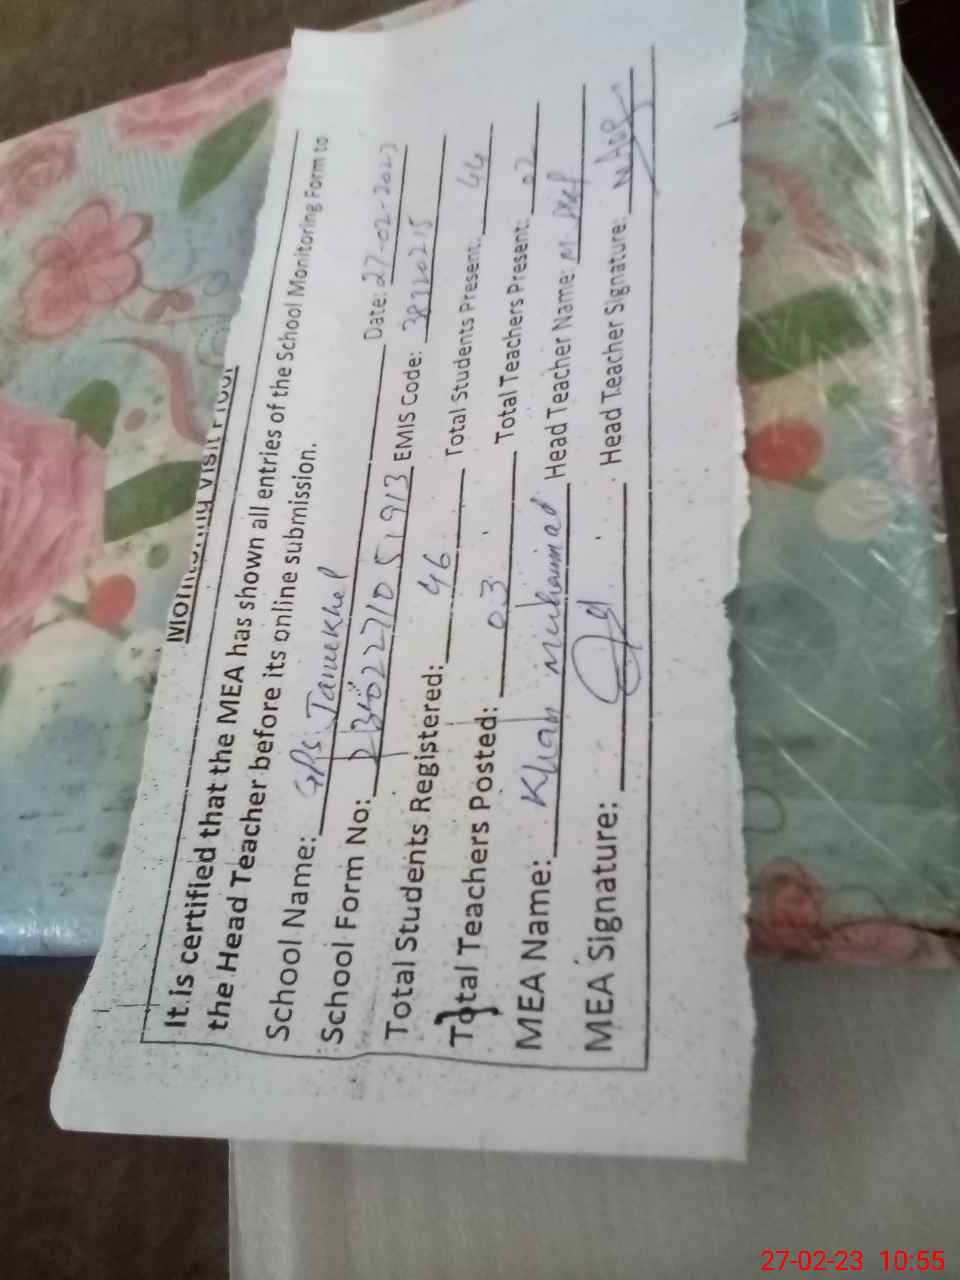 Monitoring Visit Proof
It is certified that the MEA has shown all entries of the School Monitoring Form to
the Head Teacher before its online submission.
School Name: GPS Date: 27-02-2023
School Form No: EMIS Code:
Total Students Registered: 46 Total Students Present: 44
Total Teachers Posted: 03 Total Teachers Present: 02
MEA Name: Khan Muhammad Head Teacher Name:
MEA Signature: Head Teacher Signature:
27-02-23 10:55